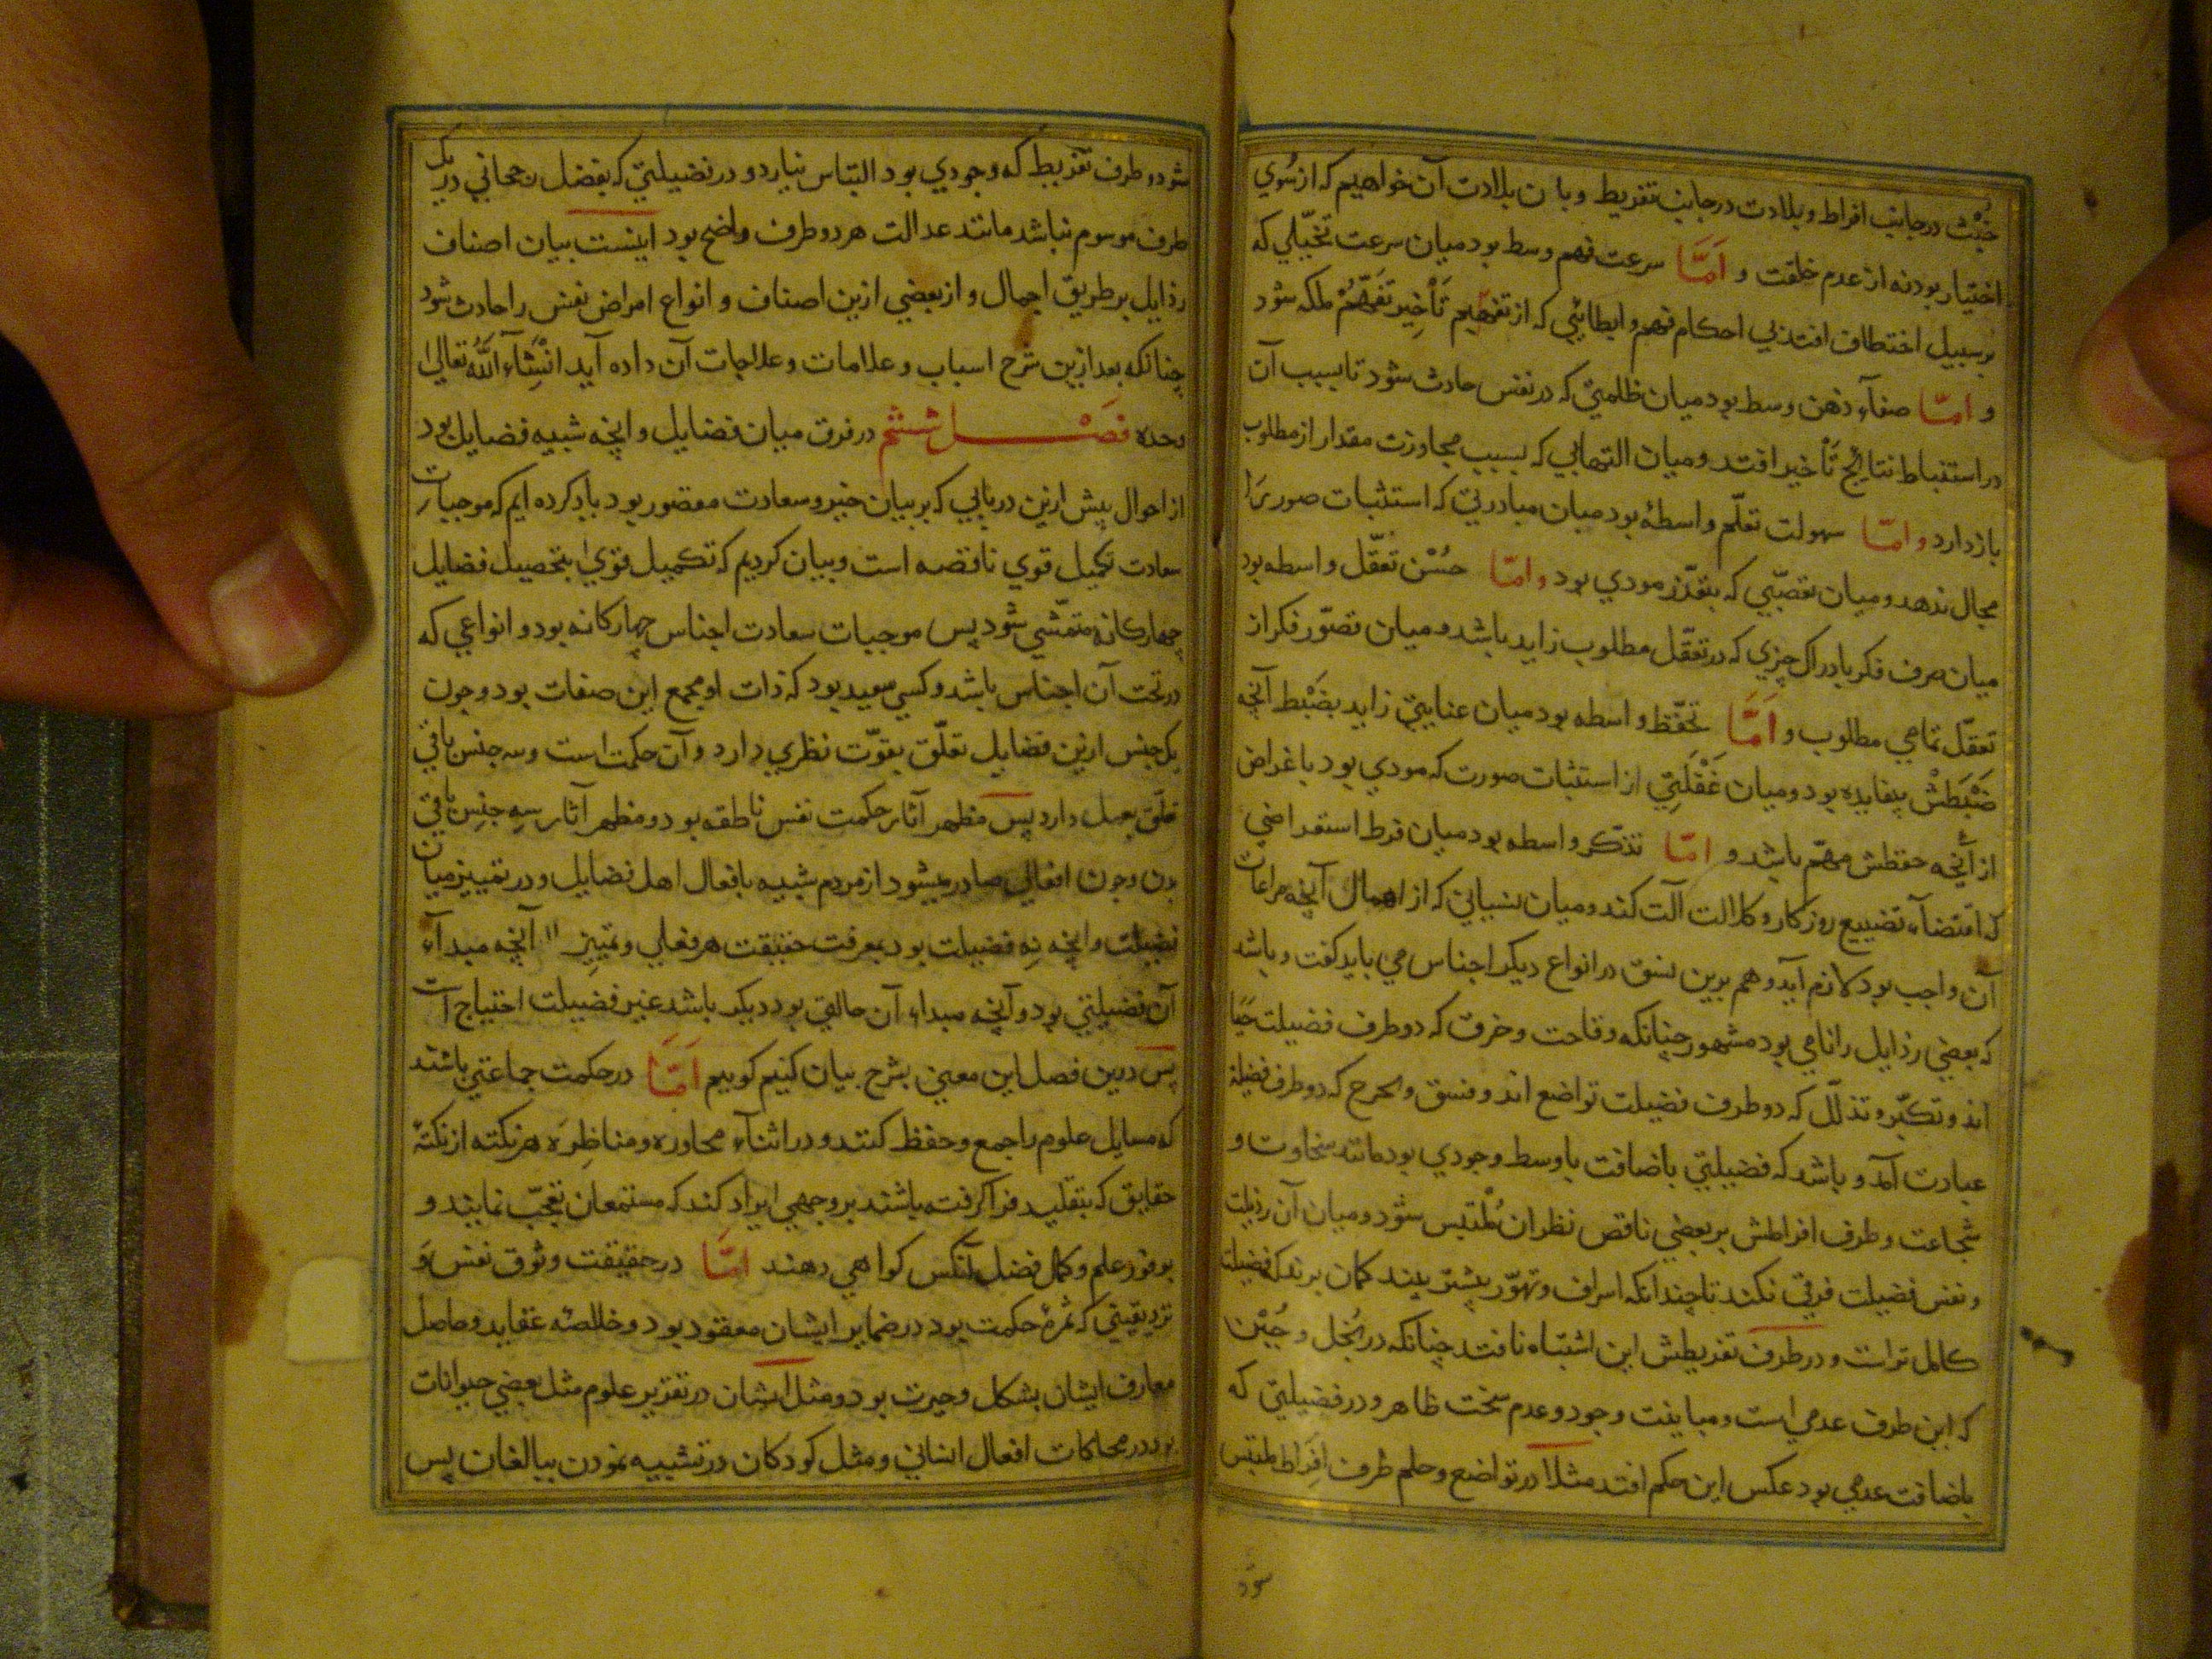 خبث در جانب افراط و بلادت در جانب تفریط و بان بلادت آن خواهیم که از سُوی
اختیار بود نه از عدم خلقت و اَمَّا سرعت فهم وسط بود میان سرعت تخیّلی که
بر سبیل اختطاف افتد بی احکام فهم و ابطائی که از تفهیم تَأخیر تَفَهُّمْ ملکه شود
و امّا صفاء ذهن وسط بود میان ظلمتی که در نفس حادث شود تا بسبب آن
در استنباط نتایج تأخیر افتد و میان التهابی که بسبب مجاوزت مقدار از مطلوب
باز دارد و امّا سهولت تعلّم واسطهٔ بود میان مبادرتی که استثبات صور را
مجال ندهد و میان تعصّبی که بتعذّر مودی بود و امّا حُسْن تعقّل واسطه بود
میان صرف فکر بادراک چیزی که در تعقّل مطلوب زاید باشد و میان تصوّر فکر از
تعقّل تمامی مطلوب و اَمَّا تحفّظ واسطه بود میان عنایتی زاید بضَبْط آنچه
ضَبْطَش بیفایده بود و میان غَفْلَتِی از استثبات صورت که مودی بود باغراض
از آنچه حفظش مهمّ باشد و امّا تذکّر واسطه بود میان فرط استعراضی
که اقتضاء تضییع روزکار و کلالت آلت کند و میان نسیانی که از اهمال آنچه مراعات
آن واجب بود لازم آید و هم برین نسق در انواع دیکر اجناس می باید کفت و باشد
که بعضی رذایل را نامی بود مشهور چنانکه وقاحت و خرق که دو طرف فضیلت حیا
اند و تکبّر و تذلّل که دو طرف فضیلت تواضع اند و فسق و تحرج که دو طرف فضیلة
عبادت آمد و باشد که فضیلتی باضافت با وسط وجودی بود مانند سخاوت و
شجاعت و طرف افراطش بر بعضی ناقص نظران مُلْتبس شود و میان آن رذیلت
و نفس فضیلت فرقی نکند تا چندانکه اسراف و تهوّر بیشتر بیند کمان برند که فضیلت
کامل تر است و در طرف تفریطش این اشتباه نافتد چنانکه در بُخل و جُبْن
که این طرف عدمی است و مباینت وجود و عدم سخت ظاهر و در فضیلتی که
باضافت عدمی بود عکس این حکم افتد مثلا در تواضع و حلم طرف افراط ملتبس
شود
شود و طرف تفریط که وجودی بود التباس نیارد و در فضیلتی که بفضل رجحانی در یک
طرف موسوم نباشد مانند عدالت هر دو طرف واضح بود اینست بیان اصناف
رذایل بر طریق اجمال و از بعضی ازین اصناف و انواع امراض نفس را حادث شود
چنانکه بعد ازین شرح اسباب و علامات و علاجات آن داده آید انشاء الله تعالی
وحده فصل ششم در فرق میان فضایل و انچه شبیه فضایل بود
از احوال پیش ازین در بابی که بر بیان خیر و سعادت مقصور بود یاد کرده ایم که موجبات
سعادت تکمیل قوی ناقصه است و بیان کردیم که تکمیل قوی بتحصیل فضایل
چهارکانه متمشّی شود پس موجبات سعادت اجناس چهارکانه بود و انواعی که
در تحت آن اجناس باشد و کسی سعید بود که ذات او مجمع این صفات بود و چون
یک جنس ازین فضایل تعلّق بقوّت نظری دارد و آن حکمت است و سه جنس باقی
تعلّق بعمل دارد پس مظهر آثار حکمت نفس ناطقه بود و مظهر آثار سه جنس باقی
بدن و چون افعالی صادر میشود از مردم شبیه بافعال اهل فضایل و در تمییز میان
فضیلت و انچه نه فضیلت بود بمعرفت حقیقت هر فعلی و تمییز آنچه مبداء
آن فضیلتی بود و آنچه مبداء آن حالتی بود دیکر باشد غیر فضیلت احتیاج است
پس درین فصل این معنی بشرح بیان کنیم کوییم اَمَّا در حکمت جماعتی باشند
که مسایل علوم را جمع و حفظ کنند و در اثناء محاوره و مناظره هر نکته از نکتهٔ
حقایق که بتقلید فرا کرفته باشند بر وجهی ایراد کند که مستمعان تعجّب نمایند و
بوفور علم و کمال فضل آنکس کواهی دهند امّا در حقیقت وثوق نفس و
برد یقینی که ثمرهٔ حکمت بود در ضمایر ایشان مفقود بود و خلاصهٔ عقاید و حاصل
معارف ایشان بشکل و حیرت بود و مثل ایشان در تقریر علوم مثل بعضی حیوانات
بود در محاکات افعال انسانی و مثل کودکان در تشبیه نمودن ببالغان پس